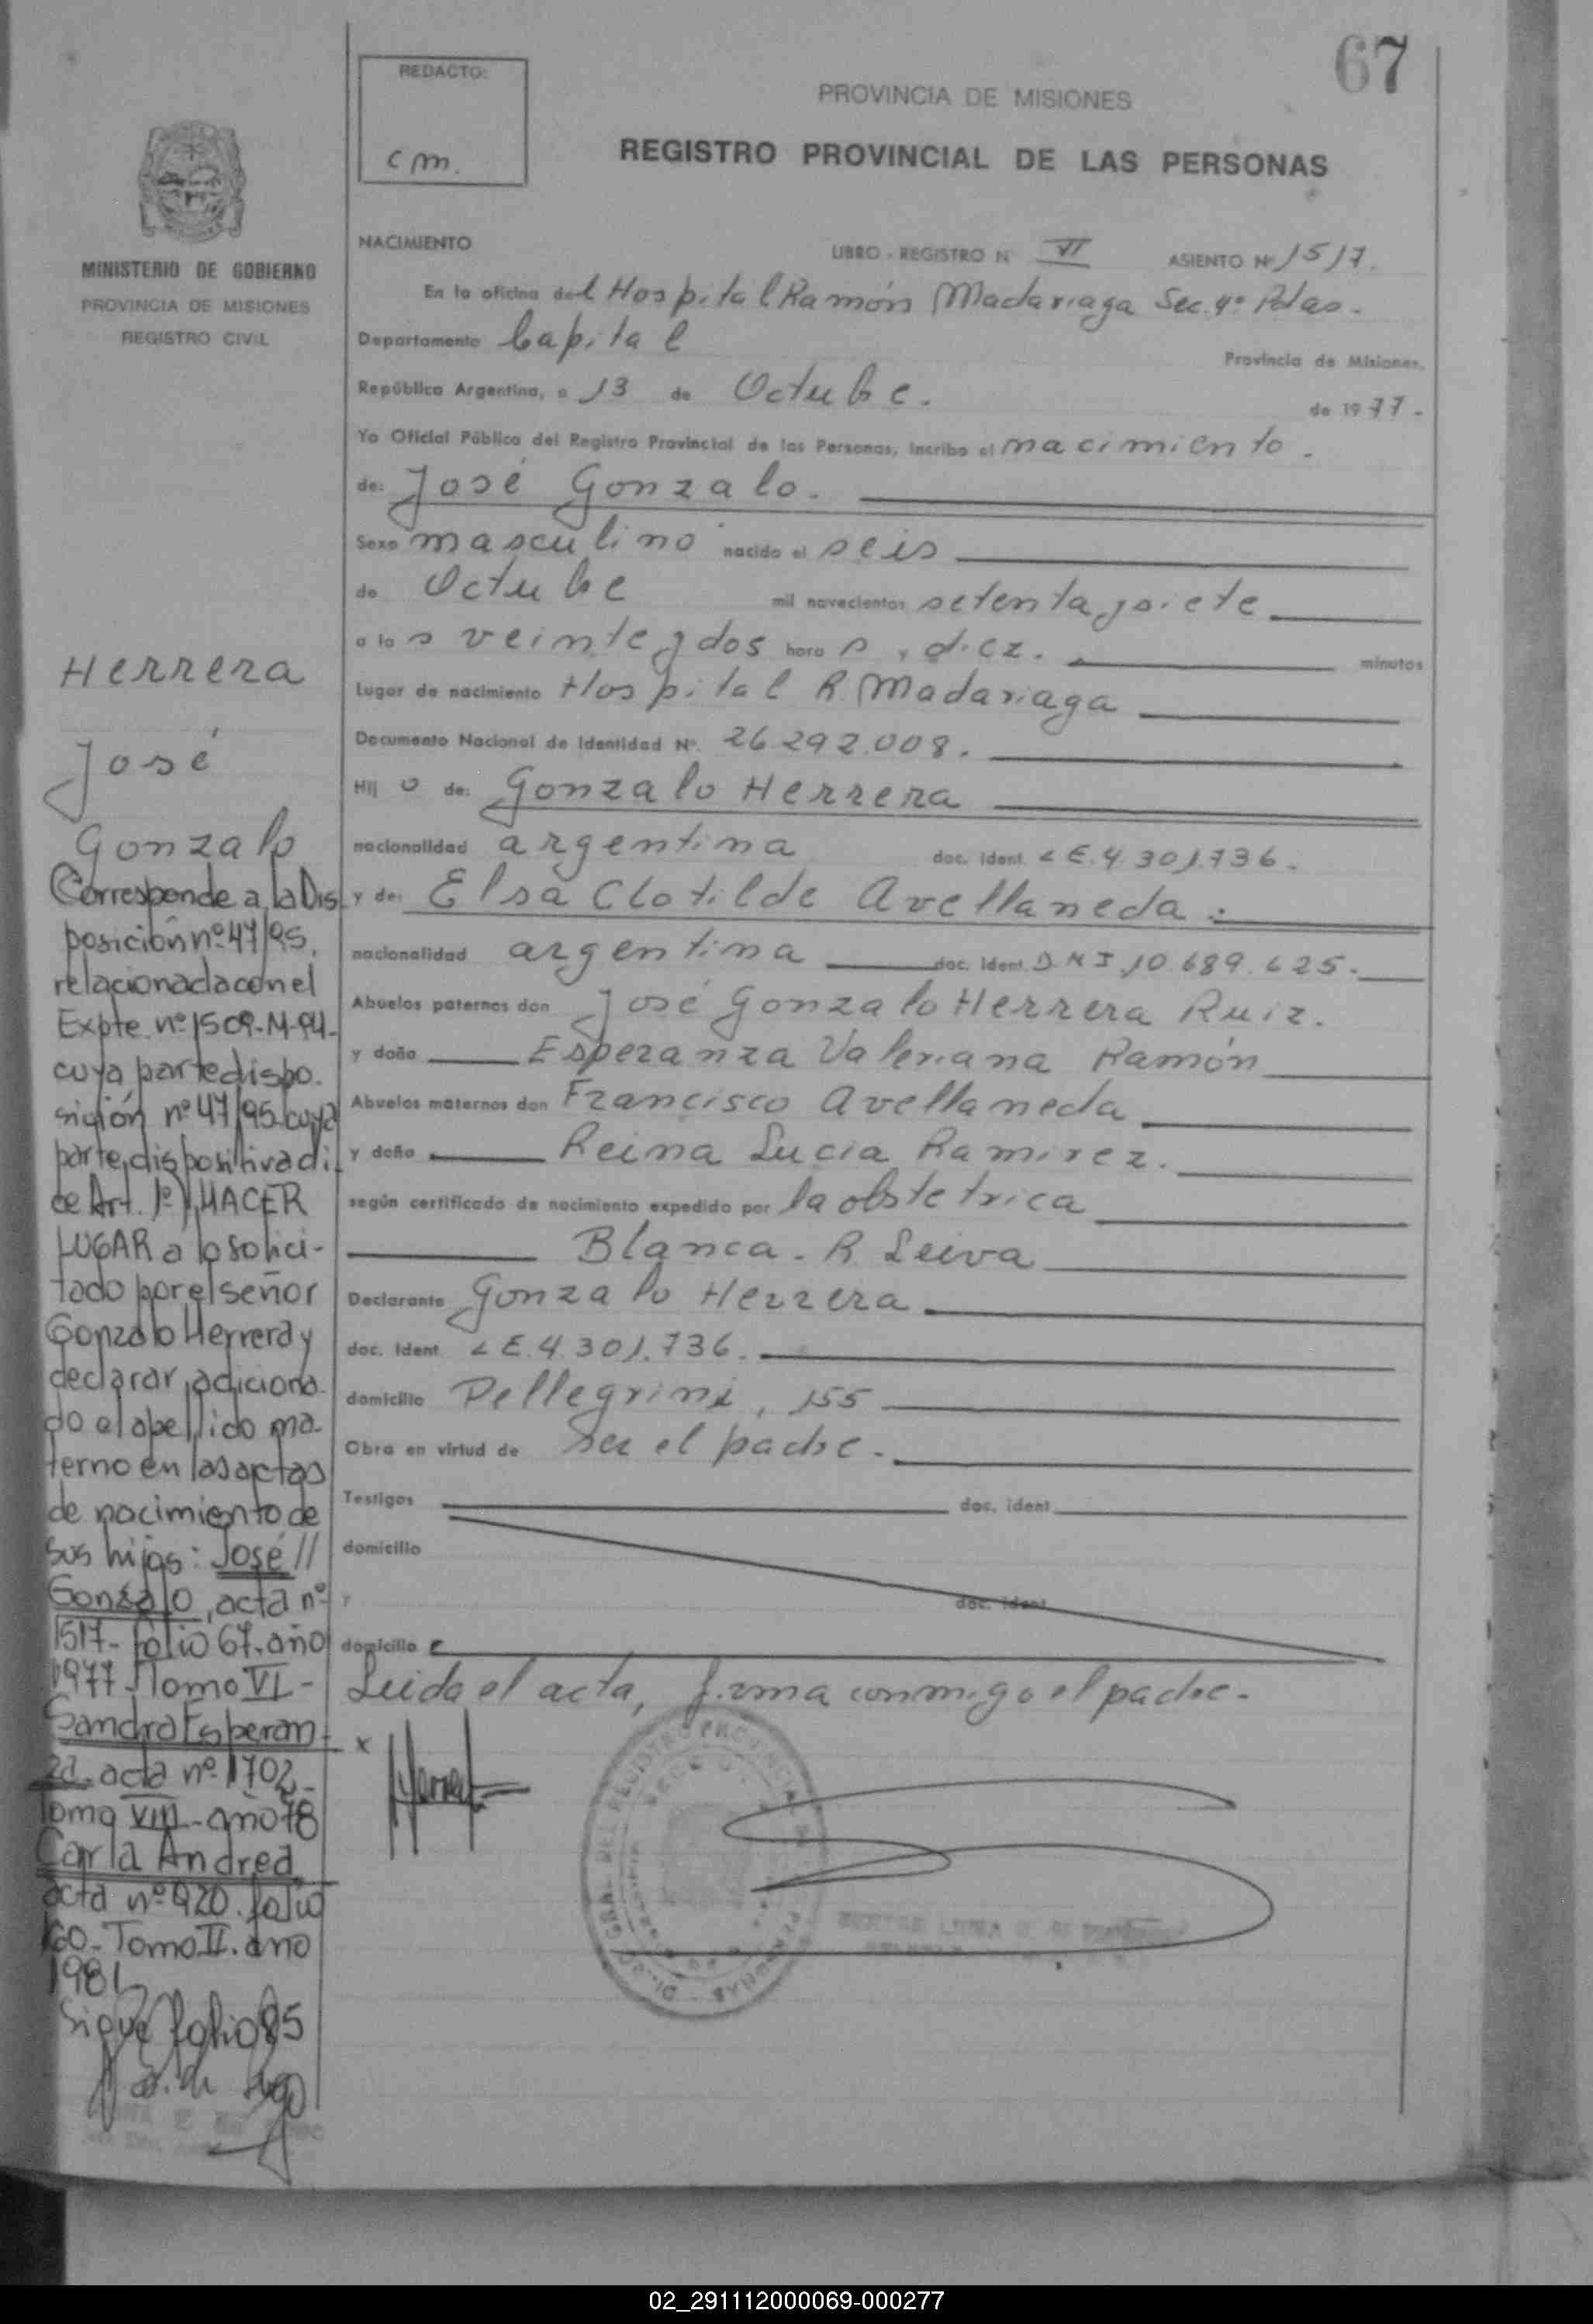 67
REDACTO:
cm.
PROVINCIA DE MISIONES
REGISTRO PROVINCIAL DE LAS PERSONAS
MINISTERIO DE GOBIERNO
PROVINCIA DE MISIONES
REGISTRO CIVIL
NACIMIENTO LIBRO - REGISTRO N VI ASIENTO Nº 1517.
En la oficina del Hospital Ramón Madariaga Sec. 4º Pdas.
Departamento Capital Provincia de Misiones,
República Argentina, a 13 de Octubre. de 1977.
Yo Oficial Público del Registro Provincial de las Personas, incribo el nacimiento.
de: José Gonzalo.
Sexo masculino nacido el seis
de Octubre mil novecientos setenta y siete
a las veinte y dos horas, diez. minutos
Lugar de nacimiento Hospital R. Madariaga
Documento Nacional de Identidad Nº. 26.292.008.
Hijo de: Gonzalo Herrera
nacionalidad argentina doc. ident. L E. 4.301.736.
y de: Elsa Clotilde Avellaneda.
nacionalidad argentina doc. ident. D N I 10.689.625.
Abuelos paternos don José Gonzalo Herrera Ruiz.
y doña Esperanza Valeriana Ramón
Abuelos maternos don Francisco Avellaneda
y doña Reina Lucia Ramirez.
según certificado de nacimiento expedido por la obstetrica
Blanca. R. Leiva
Declarante Gonzalo Herrera
doc. ident. L E. 4.301.736.
domicilio Pellegrini, 155
Obra en virtud de ser el padre.
Testigos doc. ident.
domicilio
y doc. ident.
domicilio
Leida el acta, firma conmigo el padre.
x
Herrera
José
Gonzalo
Corresponde a la Dis
posición nº 47/95,
relacionada con el
Expte. nº 1509-M-94-
cuya parte dispo.
sición nº 47/95 cuya
parte dispositiva di
ce Art. 1º) HACER
LUGAR a lo solici-
tado por el señor
Gonzalo Herrera y
declarar adiciona
do el apellido ma-
terno en las actas
de nacimiento de
sus hijos: José //
Gonzalo, acta nº
1517- folio 67. año
1977- Tomo VI-
Sandra Esperan-
za. acta nº 1702-
Tomo VIII- año 78
Carla Andrea
acta nº 920. folio
160- Tomo II. año
1981
Sigue folio 85
02_291112000069-000277